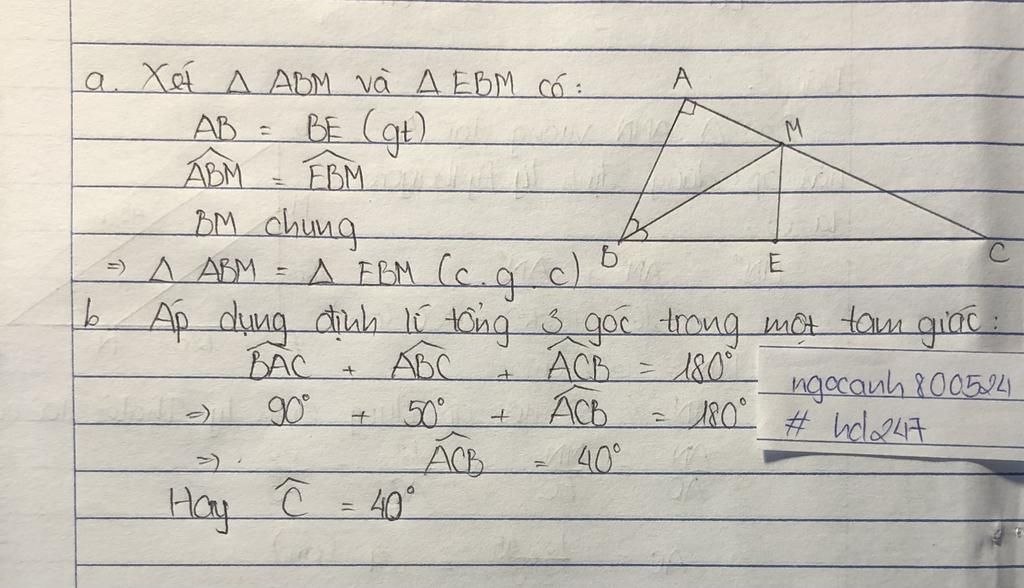 a. Xét Δ ABM và Δ EBM có:
AB = BE (gt)
ABM̂ = EBM̂
BM chung
=> Δ ABM = Δ EBM (c.g.c)
b Áp dụng định lí tổng 3 góc trong một tam giác:
BAĈ + ABĈ + ACB̂ = 180°
=> 90° + 50° + ACB̂ = 180°
=> ACB̂ = 40°
Hay Ĉ = 40°
A
M
B
E
C
ngocanh800524
# hd247